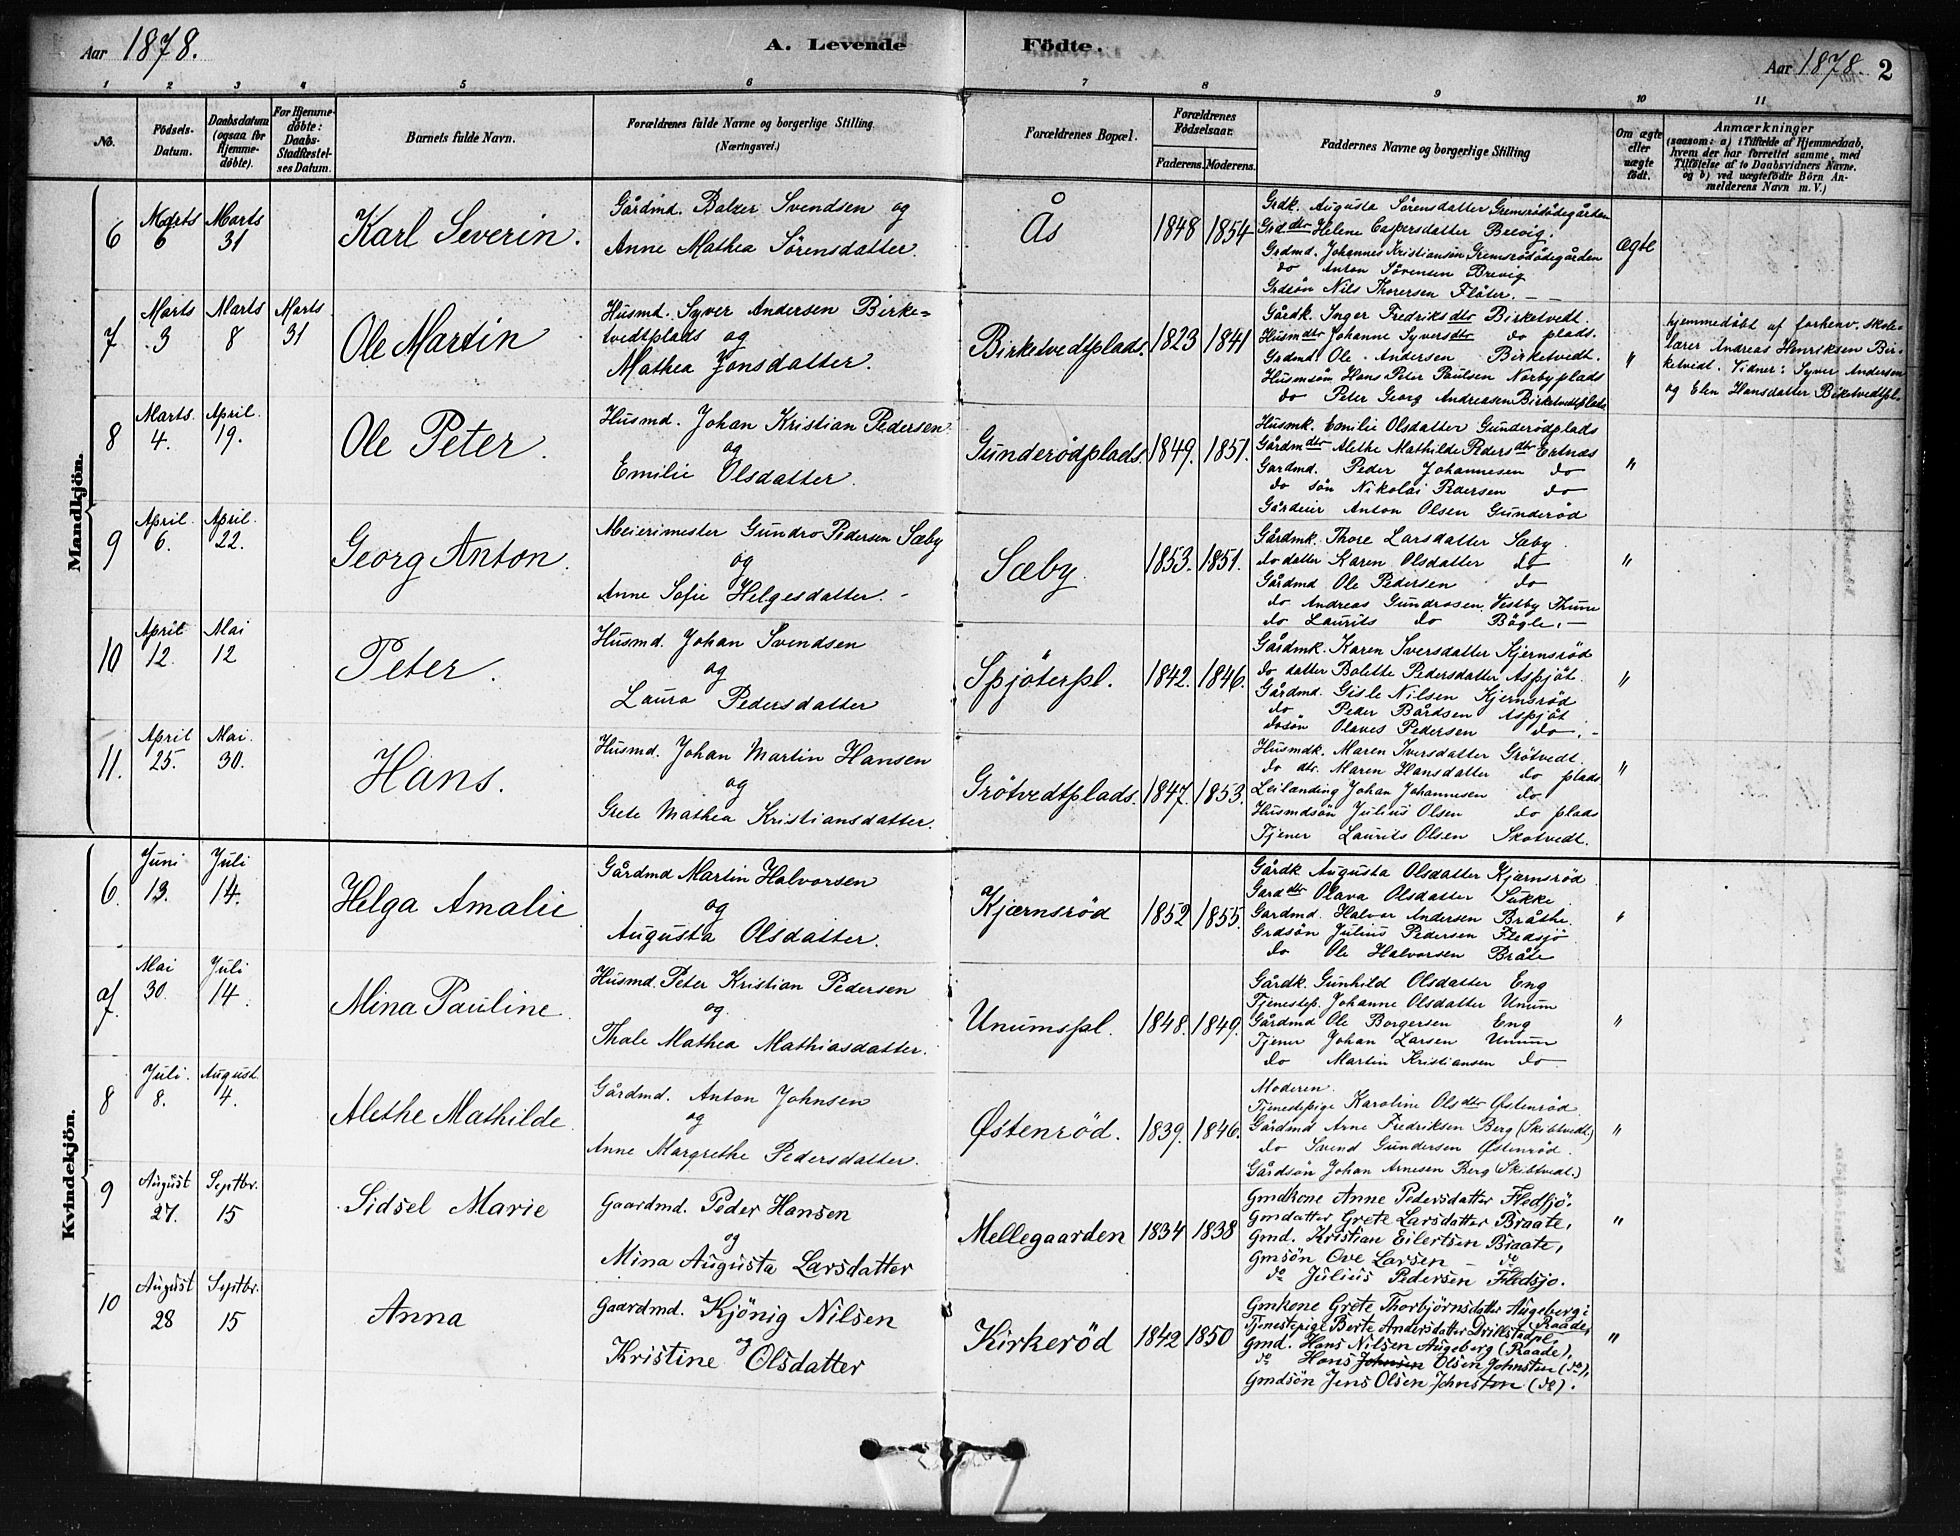 Aar 1878.
A. Levende Fødte.
Aar 1878. 2
1 2 3 4 5 6 7 8 9 10 11
No.
Fødsels-
Datum.
Daabsdatum
(ogsaa for
Hjemme-
døbte).
For Hjemme-
døbte:
Daabs-
Stadfæstel-
ses Datum.
Barnets fulde Navn.
Forældrenes fulde Navne og borgerlige Stilling
(Næringsvei.)
Forældrenes Bopæl.
Forældrenes
Fødselsaar.
Faderens. Moderens.
Faddernes Navne og borgerlige Stilling
Om ægte
eller
uægte
født.
Anmærkninger
(saasom: a) i Tilfælde af Hjemmedaab,
hvem der har forrettet samme, med
Tilføielse af to Daabsvidners Navne.
og b) ved uægtefødte Børn An-
melderens Navn m.V.)
Mandkjön.
6
Marts
6
Marts
31
Karl Severin.
Gårdmd. Balzer Svendsen og
Anne Mathea Sörensdatter.
Ås
1848 1854
Grdk. Augusta Sörensdatter Gremsrödödegården
Grd.dtr Helene Caspersdatter Brevig.
Grdmd. Johannes Kristiansen Gremsrödödegården
do Anton Sörensen Brevig
Grdsön Nils Thoresen Flöter. —
ægte
7
Marts
3
Marts
8
Marts
31
Ole Martin
Husmd. Syver Andersen Birke=
tvedtplads og
Mathea Jonsdatter.
Birketvedtplads.
1823 1841
Gårdk. Inger Fredriksdtr Birketvedt.
Husmdtr Johanne Syversdtr do plads.
Grdmd Ole Andersen Birketvedt.
Husmsön Hans Peter Paulsen Norbyplads
do Peter Georg Andreasen Birketvedtplads
"
hjemmedöbt af forhenv. skole-
lærer Andreas Henriksen Bir-
ketvedt. Vidner: Syver Andersen
og Elen Hansdatter Birketvedtpl.
8
Marts.
4.
April.
19.
Ole Peter.
Husmd. Johan Kristian Pedersen
og
Emilie Olsdatter.
Gunderödplads.
1849. 1851.
Husmk. Emilie Olsdatter Gunderödplads
Gårdmdtr Alethe Mathilde Pedersdtr Eatnæs
Gardmd. Peder Johannesen do
do sön Nikolai Pedersen do
Gårdeier Anton Olsen Gunderöd
"
9
April.
6.
April.
22.
Georg Anton.
Meierimester Gundro Pedersen Sæby
og
Anne Sofie Helgesdatter.
Sæby.
1853. 1851.
Gårdmk. Thore Larsdatter Sæby.
do datter Karen Olsdatter do
Gårdmd Ole Pedersen do
do Andreas Gundrosen, Vestby Thune
do Laurits do Bögle. —
"
10
April
12.
Mai
12
Peter.
Husmd. Johan Svendsen
og
Laura Pedersdatter
Spjöterpl.
1842. 1846.
Gårdmk. Karen Iversdatter Kjernsröd
do datter Bolette Pedersdatter Aspjöt.
Gårdmd. Gisle Nilsen Kjernsröd
do Peder Bårdsen Aspjöt
do sön Olaves Pedersen do. —
"
11.
April
25.
Mai.
30.
Hans.
Husmd. Johan Martin Hansen
og
Grete Mathea Kristiansdatter.
Grötvedtplads.
1847. 1853.
Husmdk. Maren Iversdatter Grötvedt.
do dtr. Maren Hansdatter do plads
Leilænding Johan Johannesen do
Husmdsön Julius Olsen do plads
Tjener Laurits Olsen Skotvedt.
"
Kvindekjön.
6.
Juni
13.
Juli
14.
Helga Amalie
Gårdmd Martin Halvorsen
og
Augusta Olsdatter.
Kjærnsröd
1852 1855.
Gårdk Augusta Olsdatter Kjærnsröd
Garddtr Olava Olsdatter Sukke
Gardmd. Halvor Andersen Bråthe
Grdsön Julius Pedersen Fledsjö
do Ole Halvorsen Bråte
"
7.
Mai
30.
Juli
14.
Mina Pauline
Husmd. Peter Kristian Pedersen
og
Thale Mathea Mathiasdatter.
Unumspl.
1848. 1849.
Gårdk. Gunhild Olsdatter Eng
Tjenestep. Johanne Olsdatter Unum
Gårdmd Ole Borgersen Eng
Tjener Johan Larsen Unum
do Martin Kristiansen do
"
8
Juli.
8.
August.
4.
Alethe Mathilde
Gårdmd. Anton Johnsen
og
Anne Margrethe Pedersdatter.
Østenröd.
1839. 1846.
Moderen.
Tjenestepige Karoline Olsdtr Østenröd
Gårdmd Arne Fredriksen Berg (Skibtvedt)
do Svend Gundersen Østenröd.
Gårdsön Johan Arnesen Berg (Skibtvedt.)
"
9
August
27.
Septbr.
15
Sidsel Marie
Gaardmd. Peder Hansen
og
Mina Augusta Larsdatter
Mellegaarden
1834 1838
Gmdkone Anne Pedersdatter Fledsjö.
Gmdatter Grete Larsdatter Braate,
Gmd. Kristian Eilertsen Braate,
Gmsön Ove Larsen do
do Julius Pedersen Fledsjo.
"
10
August
28
Septbr.
15
Anna
Gaardmd. Kjönig Nilsen
og
Kristine Olsdatter
Kirkeröd
1842 1850
Gmkone Grete Thorbjörnsdatter Augeberg i
(Raade),
Tjenestepige Berte Andersdatter Drillstadpl.
Gmd. Hans Nilsen Augeberg (Raade),
do Hans Johnsen Olsen Johnsten (do),
Gmdsön Jens Olsen Johnsten (do).
"